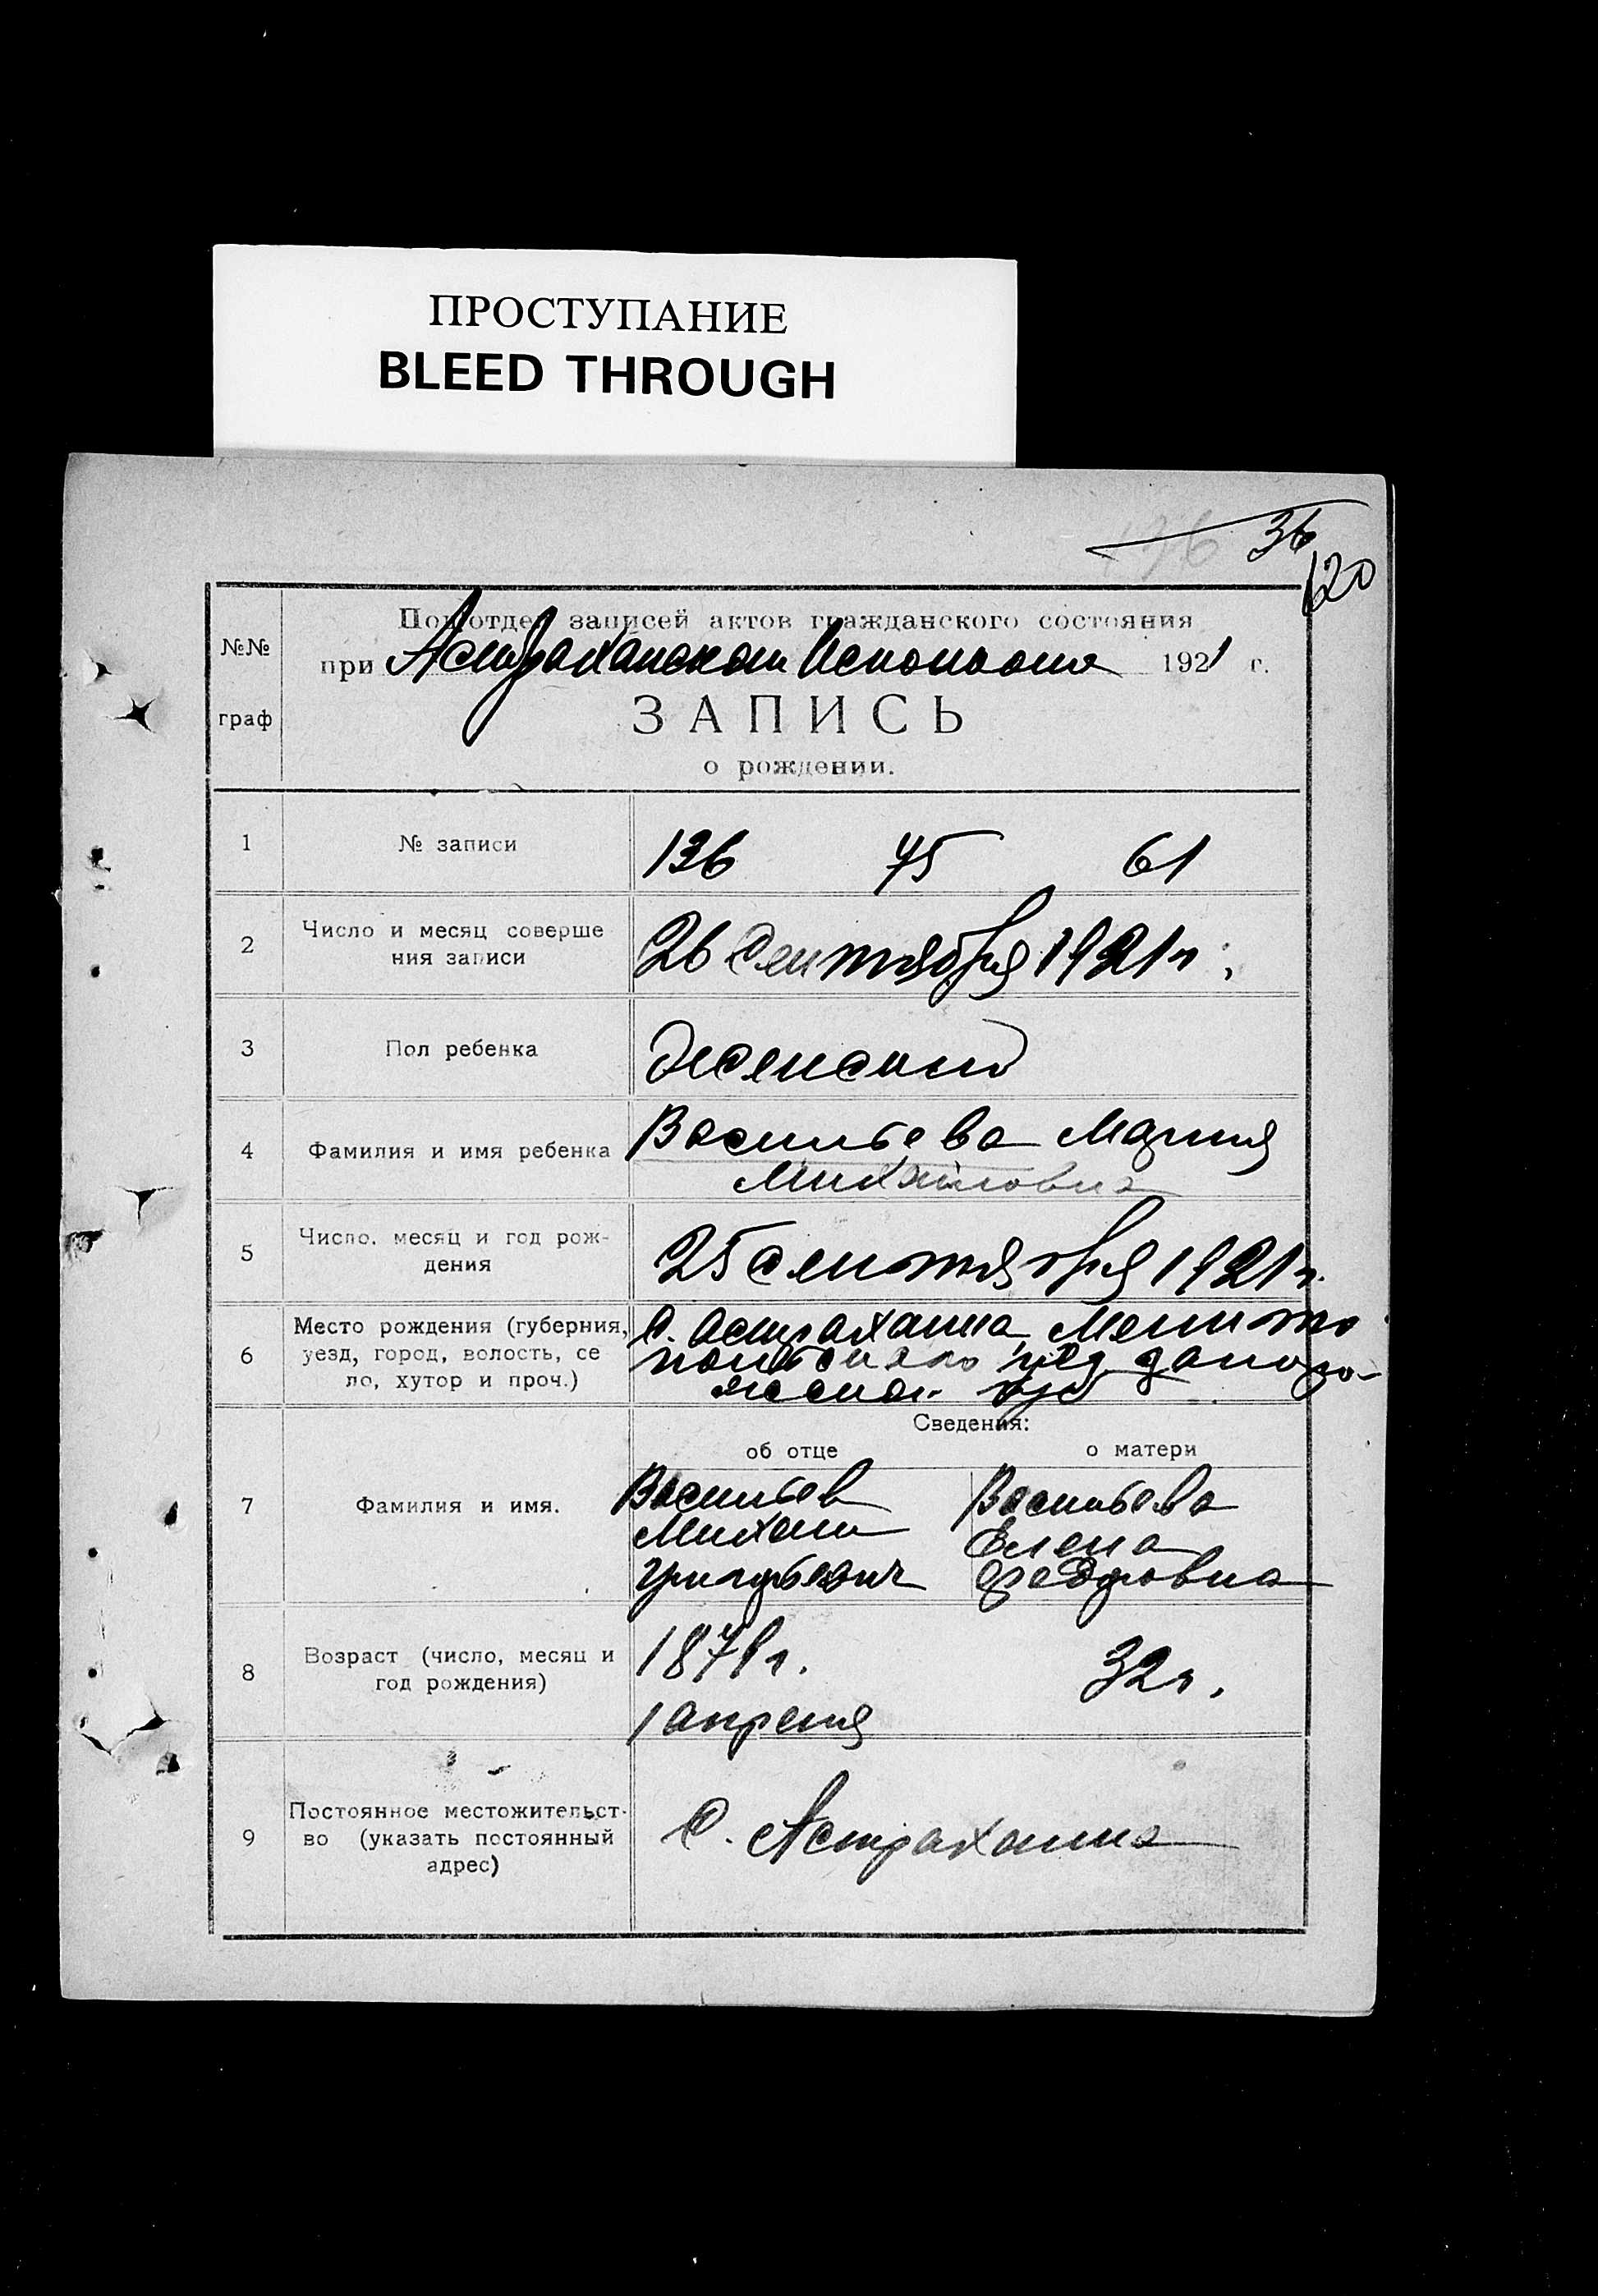 ПРОСТУПАНИЕ
BLEED THROUGH
36
120
№№
граф
Подотдел записей актов гражданского состояния
при Астраханском Исполкоме 1921 г.
ЗАПИСЬ
о рождении.
1 № записи 136 75 61
2 Число и месяц соверше
ния записи 26 Сентября 1921 г.
3 Пол ребенка Женский
4 Фамилия и имя ребенка Васильева Мария
Михайловна
5 Число, месяц и год рож-
дения 25 сентября 1921 г.
6 Место рождения (губерния,
уезд, город, волость, се
ло, хутор и проч.)
С. Астраханка Мелито
польского уезд Запоро-
жской губ
Сведения:
об отце о матери
7 Фамилия и имя.
Васильев Васильева
Михаил Елена
Григорьевич Федоровна
8 Возраст (число, месяц и
год рождения)
1879 г. 32 г.
1 апреля
9 Постоянное местожительст-
во (указать постоянный
адрес)
С. Астраханка